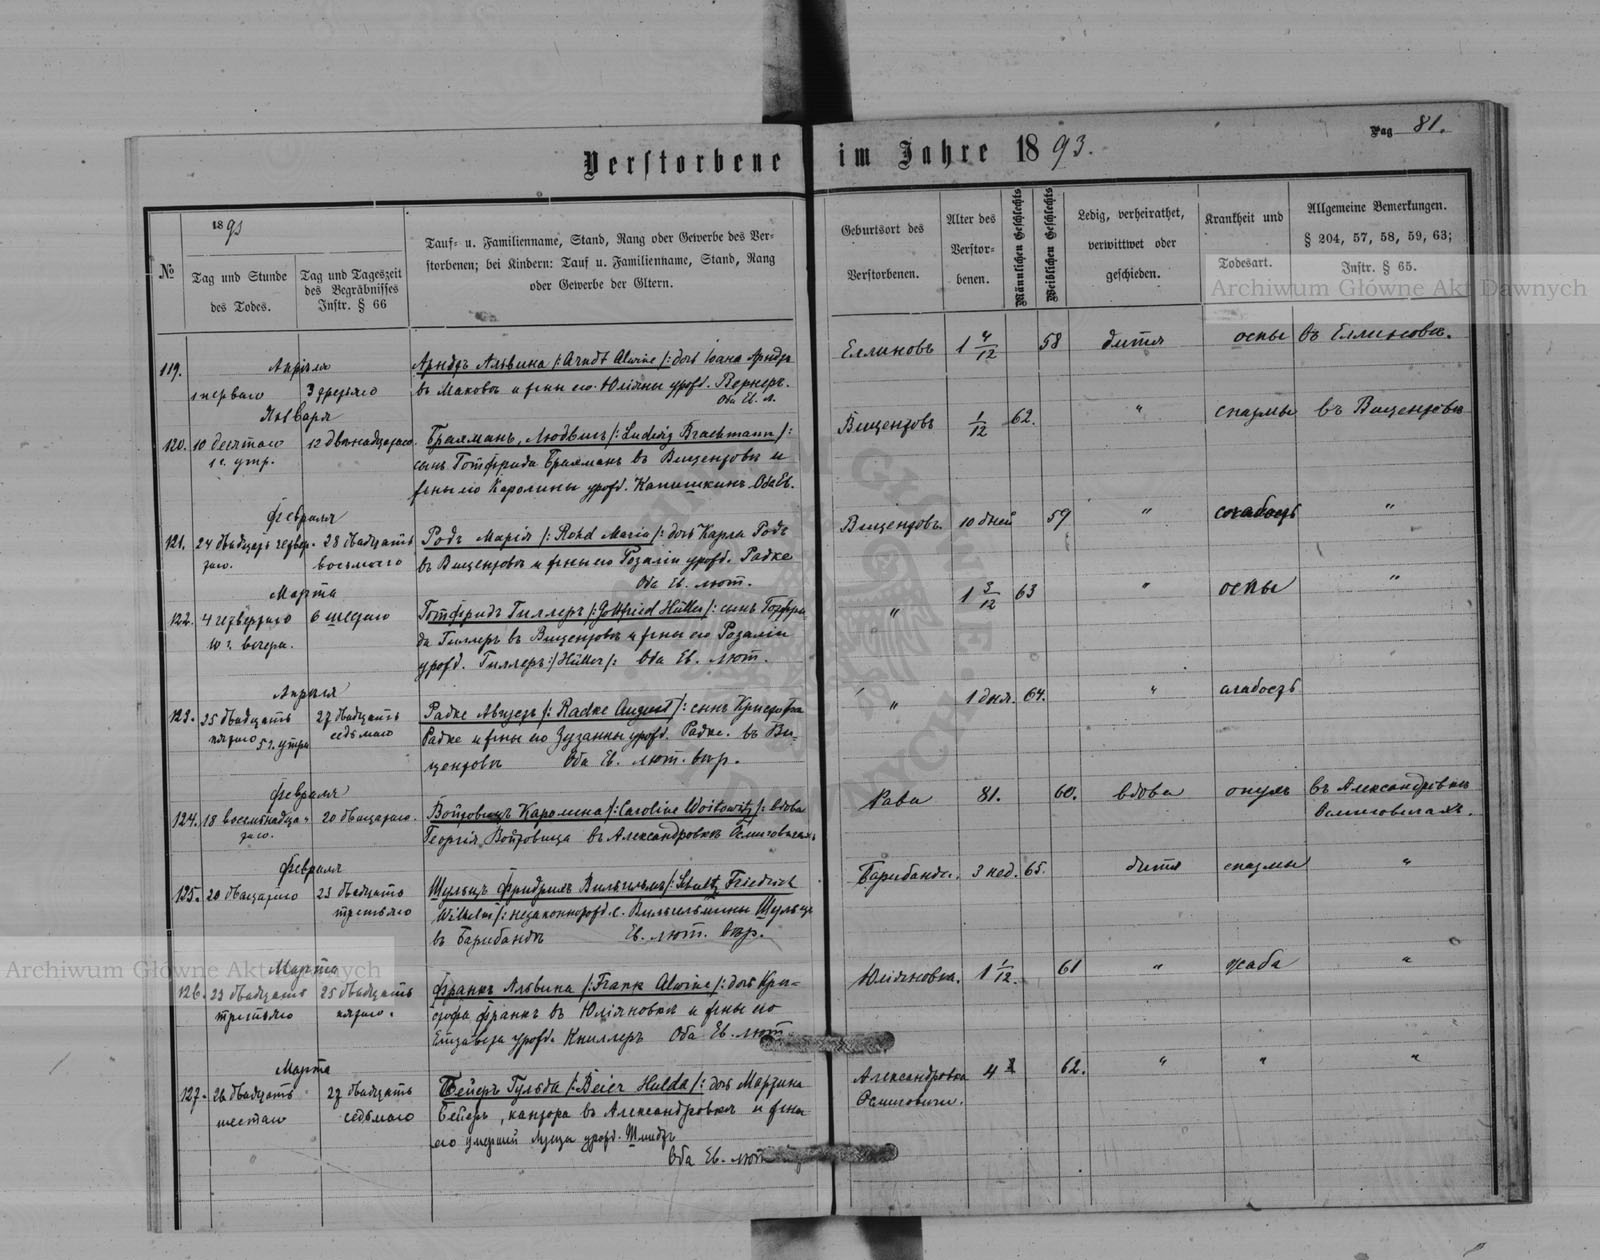 Pag 81.
Verstorbene im Jahre 1893.
№
1893
Tag und Stunde
des Todes.
Tag und Tageszeit
des Begräbnisses
Instr. § 66
Tauf- u. Familienname, Stand, Rang oder Gewerbe des Ver-
storbenen; bei Kindern: Tauf u. Familienname, Stand, Rang
oder Gewerbe der Eltern.
Geburtsort des
Verstorbenen.
Alter des
Verstor-
benen.
Männlichen Geschlechts
Weiblichen Geschlechts
Ledig, verheirathet,
verwittwet oder
geschieden.
Krankheit und
Todesart.
Allgemeine Bemerkungen.
§ 204, 57, 58, 59, 63;
Instr. § 65.
Archiwum Główne Akt Dawnych
119.
Апрѣля
1 перваго
3 третьяго
Арндтъ Альвина /: Arndt Alwine /: дочь Іоана Арндтъ
въ Маковѣ и жены его Юліяны урожд. Вернеръ.
Оба Ев. л.
Еллиновъ
1 4/12
58
дитя
оспы
въ Еллиновѣ.
Января
120.
10 десятаго
1 ч. утр.
12 двѣнадцатаго.
Брахманъ, Людвигъ /: Ludwig Brachmann /:
сынъ Готфрида Брахманъ въ Вищентовѣ и
жены его Каролины урожд. Капишкинъ Оба Ев.
Вищентовъ
1/12
62.
"
спазмы
въ Вищентовѣ
Февраля
121.
24 двадцать четвер-
таго.
28 двадцать
восьмого
Родъ Марія /: Rohd Maria /: дочь Карла Родъ
въ Вищентовѣ и жены его Розаліи урожд. Радке
Оба Ев. лют.
Вищентовъ.
10 дней
59
"
слабость
"
Марта
122.
4 четвертаго
10 ч. вечера.
6 шестаго
Готфридъ Гиллеръ /: Gottfried Hüller /: сынъ Готфри
да Гиллеръ въ Вищентовѣ и жены его Розаліи
урожд. Гиллеръ :/ Hüller /: Оба Ев. лют.
"
1 3/12
63
"
оспы
"
Апрѣля
123.
25 двадцать
пятаго 5 ч. утра
27 двадцать
седьмаго
Радке Августъ /: Radke August /: сынъ Кристофа
Радке и жены его Зузанны урожд. Радке. въ Ви-
щентовѣ Оба Ев. лют. вѣр.
"
1 дня.
64.
"
слабость
Февраля
124.
18 восемнадца-
таго.
20 двацатаго.
Войтовицъ Каролина /: Caroline Woitowitz /: вдова
Георгія Войтовица въ Александровкѣ
Рава
81.
60.
вдова
опухъ
въ Александровкѣ
Февраля
125.
20 двацатаго
23 двадцать
третьяго
Шульцъ Фридрихъ Вильгельмъ /: Schultz Friedrich
Wilhelm /: незаконнорожд. с. Вильгельмины Шульцъ
въ Барибандѣ Ев. лют. вѣр.
3 нед.
65.
дитя
спазмы
"
Archiwum Główne Akt Dawnych
Марта
126.
23 двадцать
третьяго
25 двадцать
пятаго.
Франкъ Альвина /: Frank Alwine /: дочь Кри-
стофа Франкъ въ Юліяновкѣ и жены его
Елизавета урожд. Книллеръ Оба Ев. лют
Юліяновка.
1 1/12.
61
"
жаба
"
Марта
127.
26 двадцать
шестаго
27 двадцать
седьмаго
Бейеръ Гульда /: Beier Hulda /: дочь Мартина
Бейеръ, кантора въ Александровкѣ и жены
его умершей Луизы урожд. Шмидтъ
Оба Ев. лют
Александровка
4
62.
"
"
"